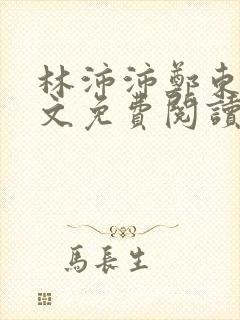 林沛沛鄭東
文免費閱讀
馬長生